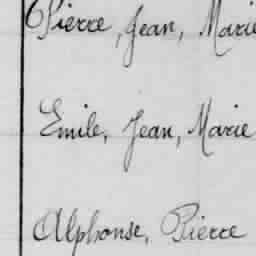 Pierre, Jean, Marie
Emile, Jean, Marie
Alphonse, Pierre